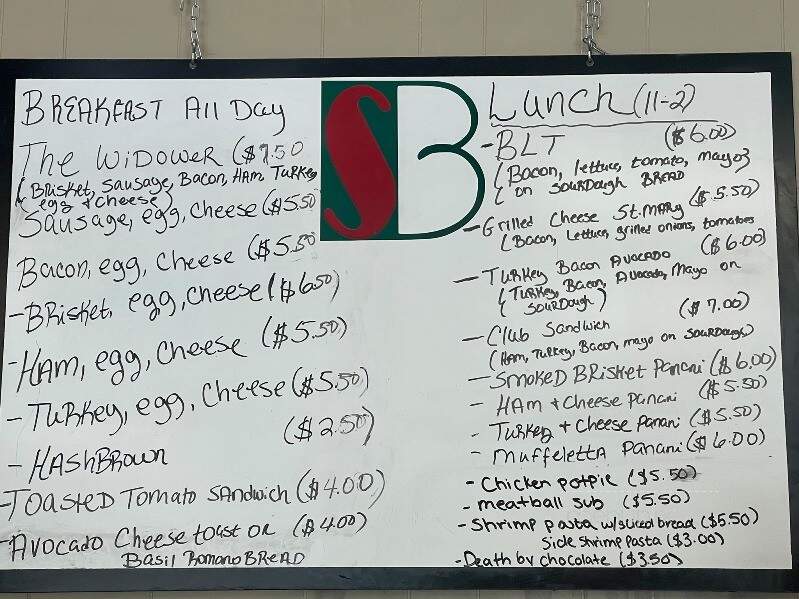 BREAKFAST All Day
The WIDOWER ($7.50
(BRISKET, SAUSAGE, BACON, HAM, TURKEY
egg & cheese)
Sausage, egg, cheese ($5.50
Bacon, egg, cheese ($5.50
- BRISKET, egg, cheese ($6.50)
- HAM, egg, cheese ($5.50)
- TURKEY, egg, cheese ($5.50)
- HASHBROWN ($2.50)
- TOASTED TOMATO SANDWICH ($4.00)
- AVOCADO Cheese toast OR ($4.00)
BASIL ROMANO BREAD
SB
Lunch (11-2)
- BLT ($6.00)
(Bacon, lettuce, tomato, mayo)
( on SOURDOUGH BREAD
- GRILLED Cheese St. MARY ($5.50)
(Bacon, Lettuce, grilled onions, tomatoes
- TURKEY Bacon AVOCADO ($6.00)
(TURKEY, Bacon, Avocado, Mayo on
SOURDOUGH)
- Club Sandwich ($7.00)
(HAM, TURKEY, Bacon, mayo on SOURDOUGH)
- SMOKED BRISKET Panani ($6.00)
- HAM + Cheese Panani ($5.50)
- TURKEY + Cheese Panani ($5.50)
- MUFFELETTA Panani ($6.00)
- Chicken potpie ($5.50)
- meatball sub ($5.50)
- Shrimp pasta w/sliced bread ($5.50)
Side Shrimp Pasta ($3.00)
- Death by chocolate ($3.50)